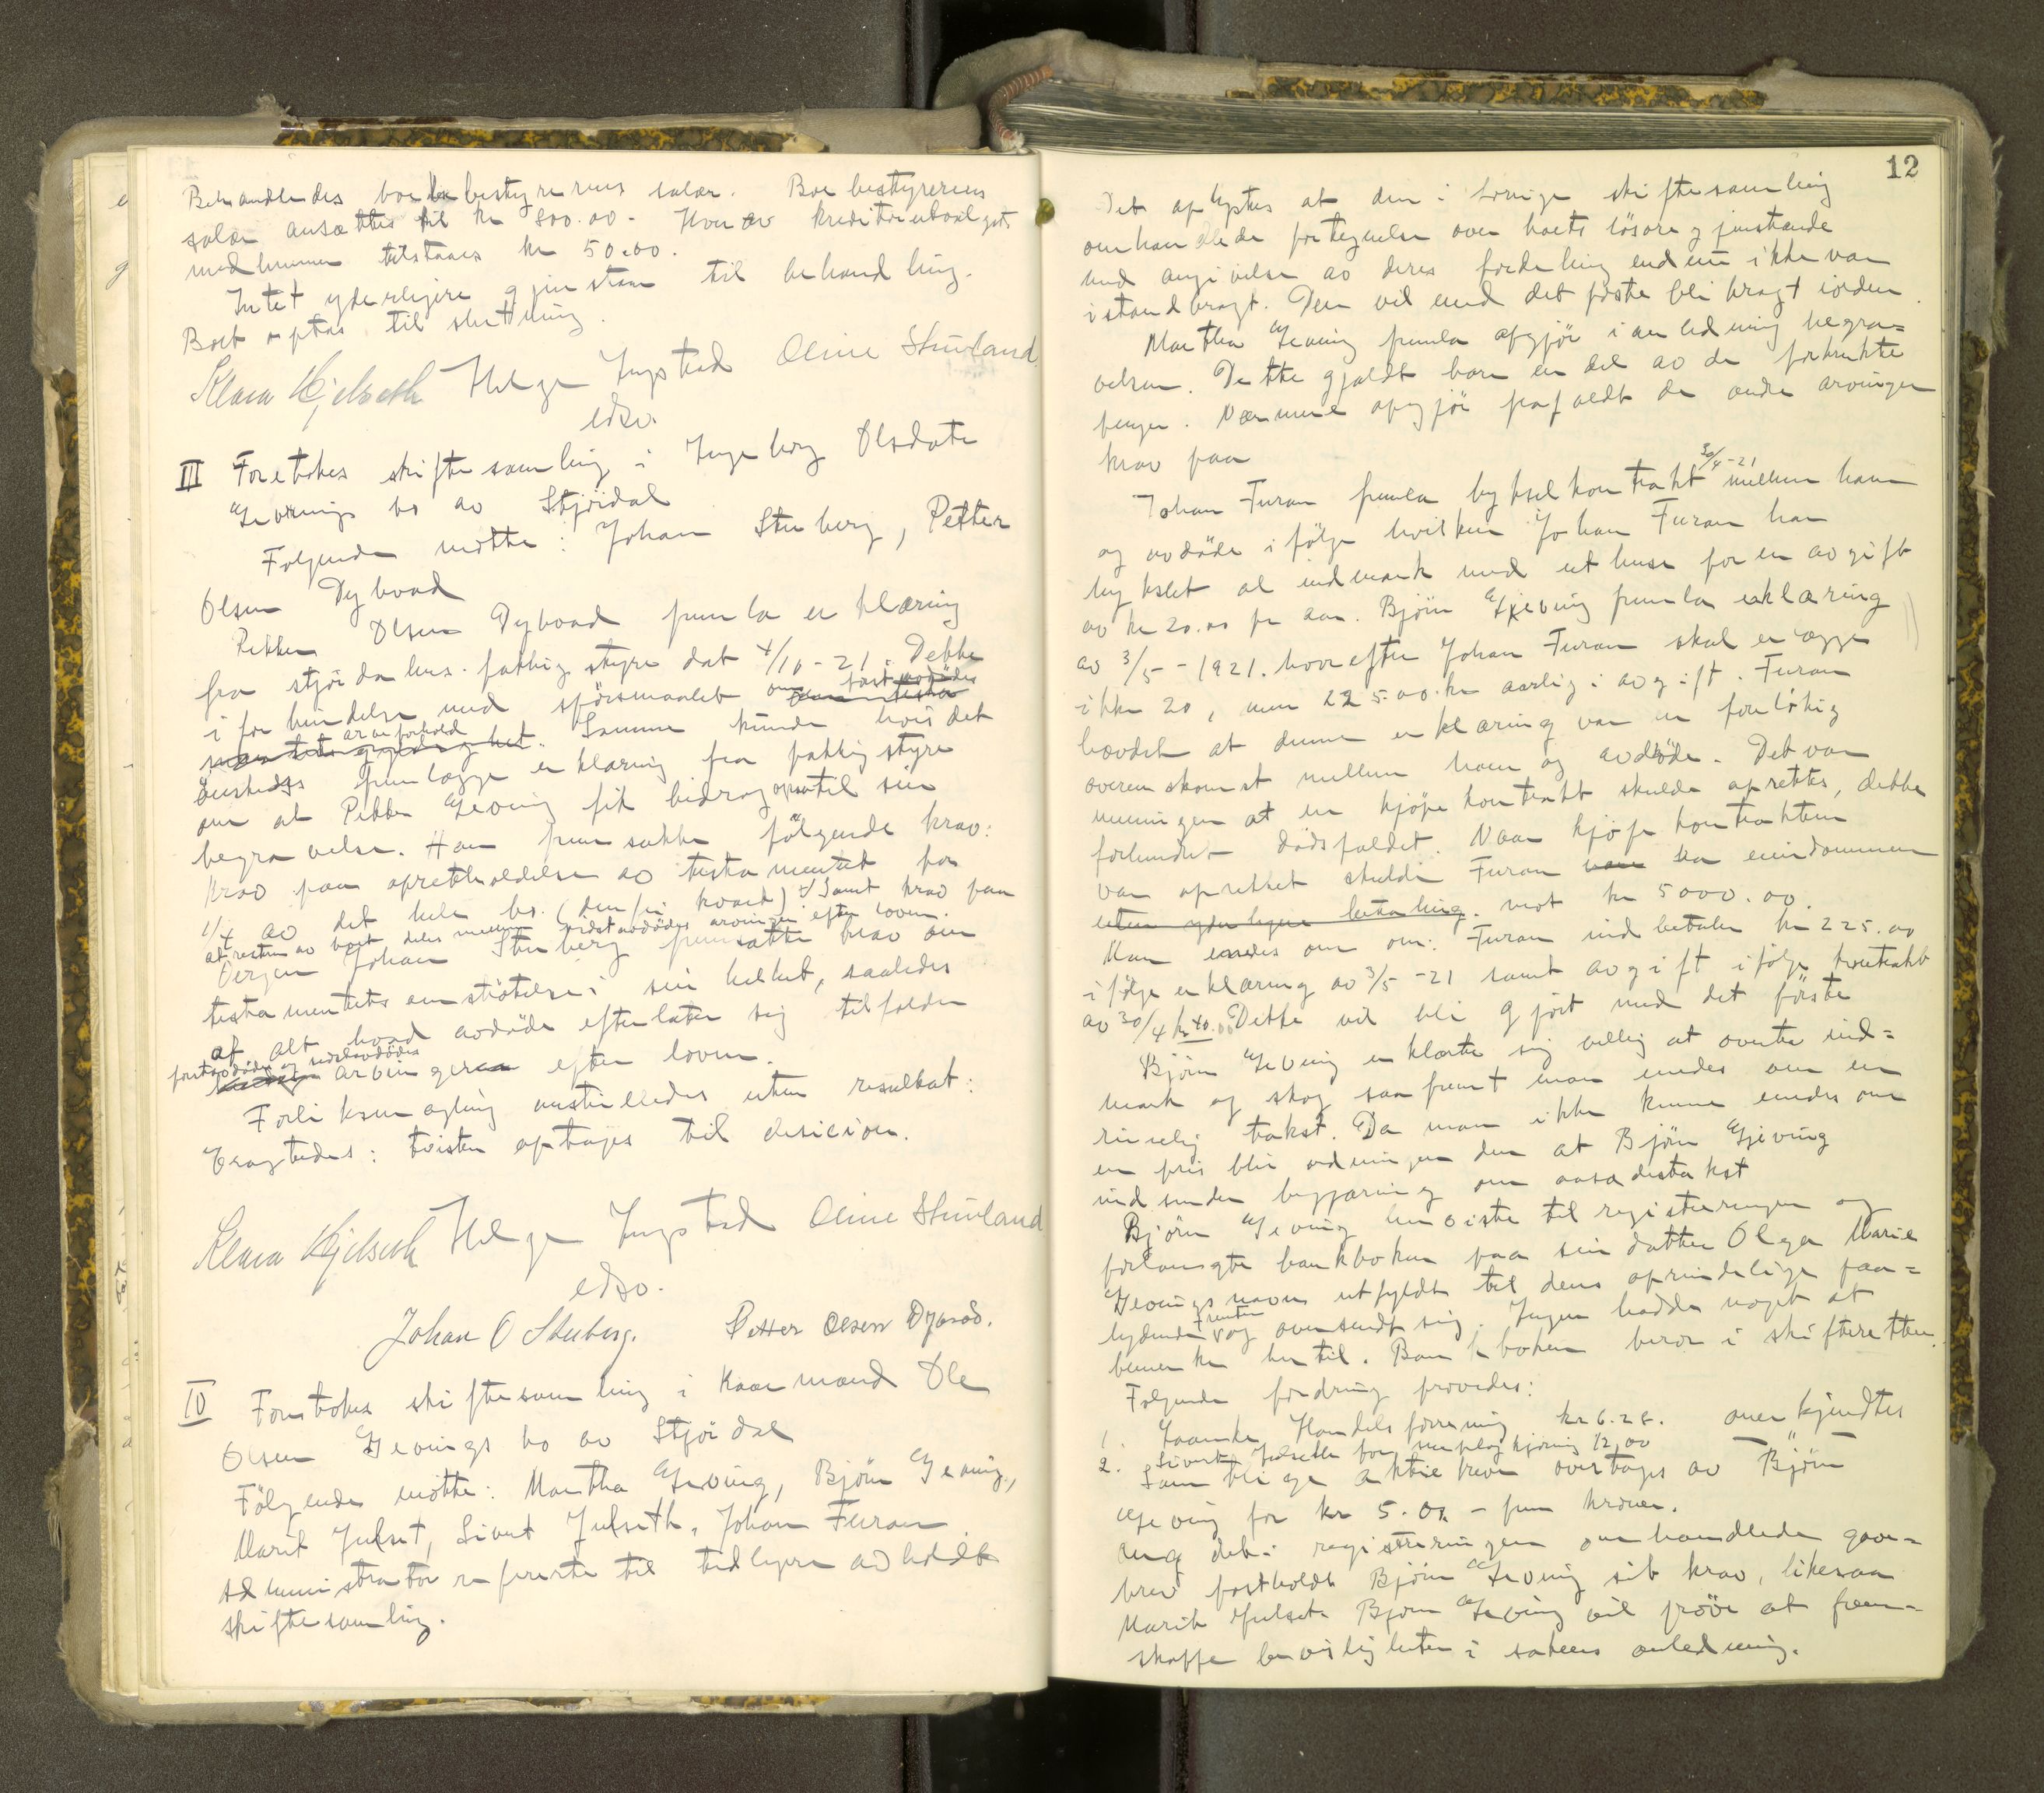 Behandledes boebestyrerens salær. Boebestyrerens
salær ansættes til kr 800.00. Hver av kreditorutvalgets
medlemmer tilstaaes kr 50.00.
Intet yderligere gjenstaar til behandling.
Boet optas til slutning.
Klara Hjelseth Helge Ingstad Oline Stuvland
edsv.
III Foretokes skiftesamling i Ingeborg Olsdatter
Gevings bo av Stjørdal
Følgende møtte: Johan Stuberg, Petter
Olsen Dybvad
Petter Olsen Dybvad fremla erklæring
fra Stjørdalens fattigstyre dat 4/10-21. Dette
i forbindelse med spørsmaalet om først avdødes
arveforhold
Samme kunde hvis det
ønskedes fremlægge erklæring fra fattigstyre
om at Petter Geving fik bidrag ogsaa til sin
begravelse. Han fremsatte følgende krav:
Krav paa opretholdelse av testamentet for
1/4 av det hele bo. (den fri kvart) Samt krav paa
at resten av boet deles mellem sidstavdødes arvinger efter loven.
Vergen Johan Stuberg fremsatte krav om
testamentets omstøtelse i sin helhet, saaledes
at alt hvad avdøde efterlater sig tilfalder
førstavdødes og sidstavdødes
arvinger efter loven.
Forliksmægling anstilledes uten resultat:
Eragtedes: tvisten optages til desicion.
Klara Hjelseth Helge Ingstad Oline Stuvland
edsv.
Johan O Stuberg. Petter Olsen Dybvad.
IV Foretokes skiftesamling i Kaarmand Ole
Olsen Gevings bo av Stjørdal
Følgende møtte: Martha Geving, Bjørn Geving,
Marit Julset, Sivert Julseth, Johan Furan.
Administrator refererte til tidligere avholdt
skiftesamling.
12
Det oplystes at den i forrige skiftesamling
omhandlede fortegnelse over boets løsøregjenstande
med angivelse av deres fordeling endnu ikke var
istandbragt. Den vil med det første bli bragt iorden.
Martha Geving fremla opgjør i anledning begra=
velsen. Dette gjaldt bare en del av de forbrukte
penger. Nærmere opgjør frafaldt de andre arvinger
krav paa
30/4-21
Johan Furan fremla bykselkontrakt mellem ham
og avdøde ifølge hvilken Johan Furan har
bykslet al indmark med uthuse for en avgift
av kr 20.00 pr aar. Bjørn Gjeving fremla erklæring
av 3/5-1921. hvorefter Johan Furan skal erlægge
ikke 20, men 225.00 kr aarlig i avgift. Furan
hævdet at denne erklæring var en foreløbig
overenskomst mellem ham og avdøde. Det var
meningen at en kjøpekontrakt skulde oprettes, dette
forhindret dødsfaldet. Naar kjøpekontrakten
var oprettet skulde Furan ha eiendommen
uten yderligere betaling. mot kr 5000.00.
Man enedes om om: Furan indbetaler kr 225.00
ifølge erklæring av 3/5-21 samt avgift ifølge kontrakt
av 30/4 kr 40.00 Dette vil bli gjort med det første
Bjørn Geving erklærte sig villig at overta ind=
mark og skog saafremt man enedes om en
rimelig takst. Da man ikke kunne enedes om
en pris blir ordningen den at Bjørn Gjeving
indsender begjæring om aasædestakst
Bjørn Geving henviste til registreringen og
forlangte bankboken paa sin datter Olga Marie
Gevings navn utfyldt til dens oprindelige paa=
lydende og oversendt sig. Ingen hadde noget at
bemerke hertil. Bankboken beror i skifteretten.
Følgende fordring prøvedes:
1. Laanke Handelsforening kr 6.28. anerkjendtes
2. Sivert Julseth for sneplogkjøring 12,00 — " —
Samtlige aktiebrev overtages av Bjørn
Geving for kr 5.00 - fem kroner.
Ang det i registreringen omhandlede gave=
brev fastholdt Bjørn Geving sit krav, likesaa
Marit Julset. Bjørn Geving vil prøve at frem=
skaffe bevisligheter i sakens anledning.